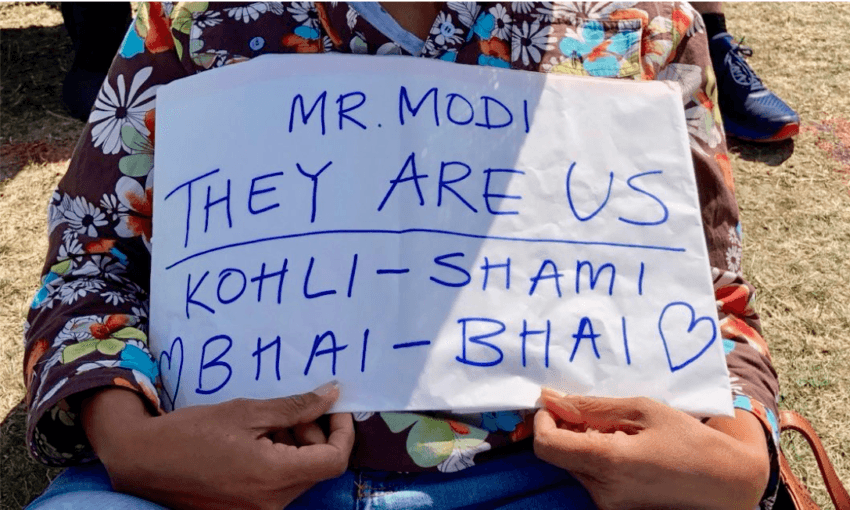 MR. MODI
THEY ARE US
KOHLI - SHAMI
BHAI - BHAI